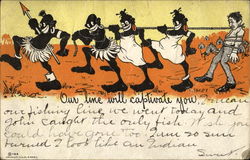 Our line will captivate you.
our fishing line we went today and
John caught the only fish. I wish you
could have gone too. Am so sun
burned I look like an Indian